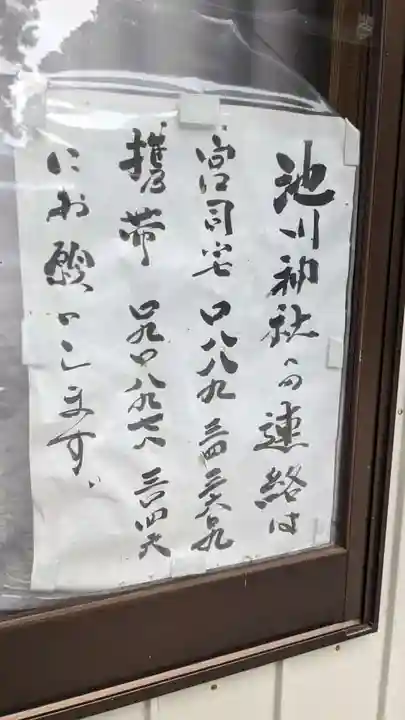 池川神社への連絡は
宮司宅 〇八八九 三四
携帯 〇九〇 八九七八 三〇四六
にお願いします。